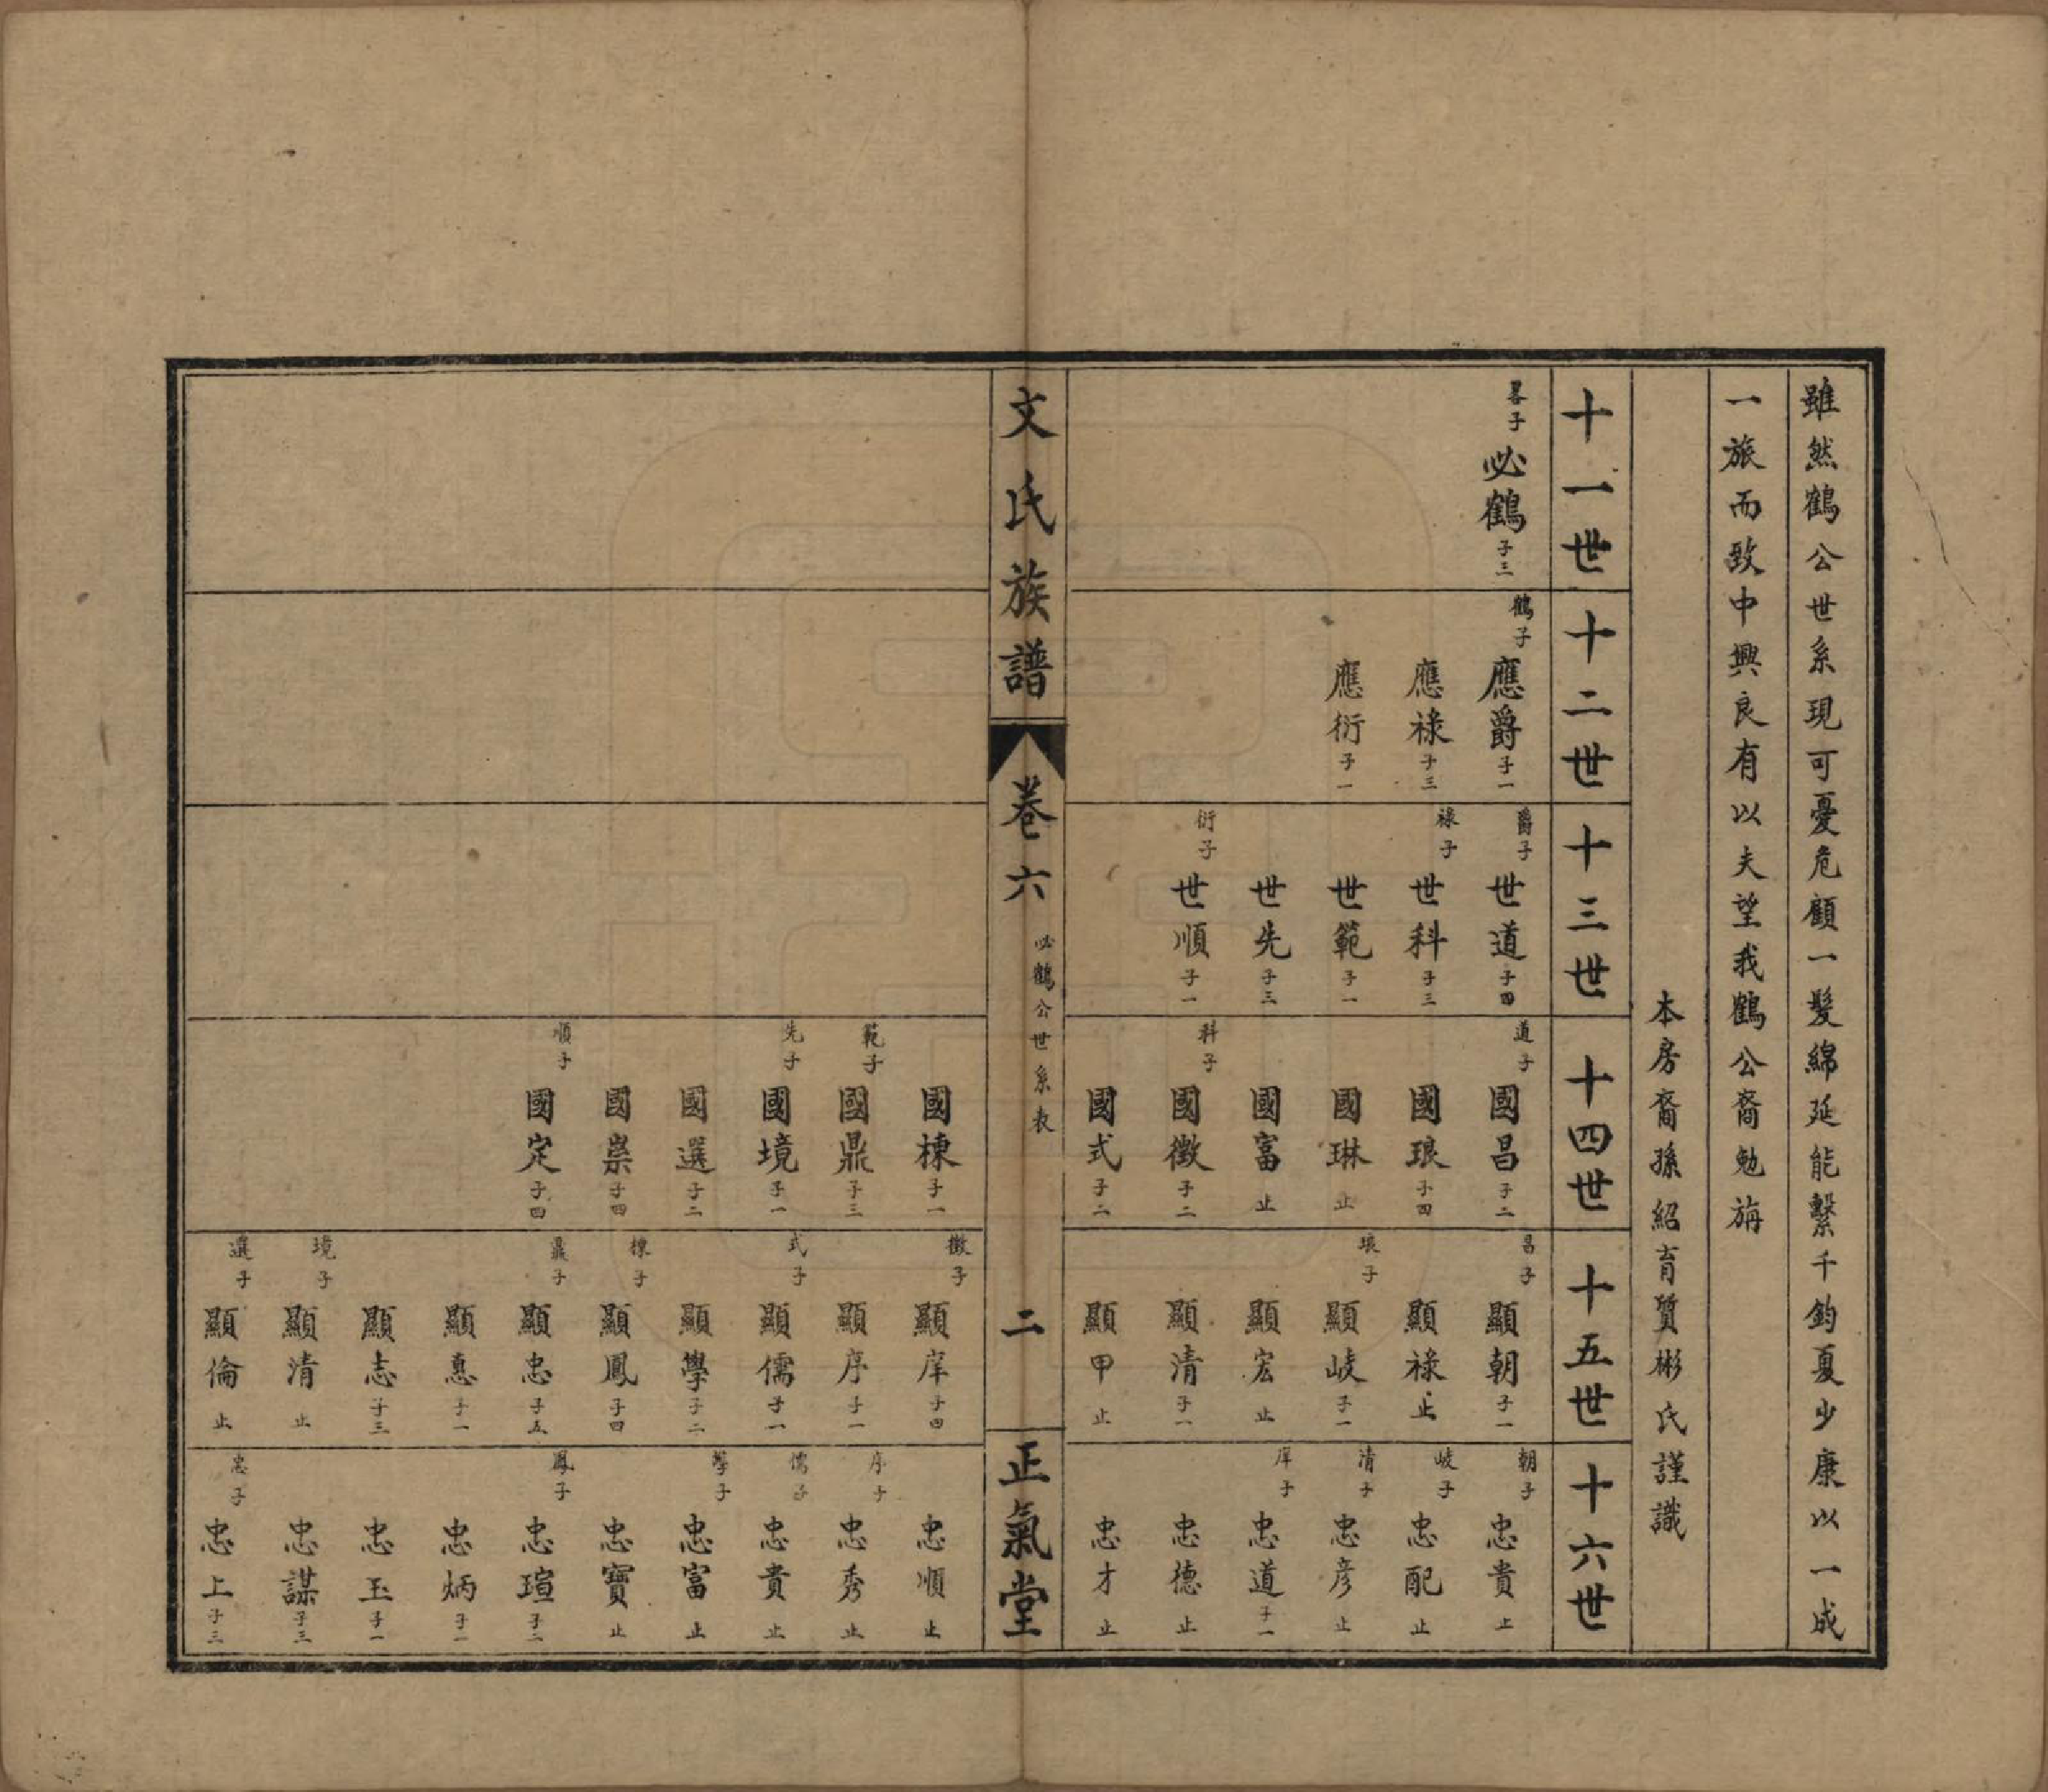 雖然鶴公世系現可憂危顧一髮綿延能繫千鈞夏少康以一成
一旅而致中興良有以夫望我鶴公裔勉旃
本房裔孫紹育質彬氏謹識
十一世
畧子 必鶴 子三
十二世
鶴子 應爵 子一
應祿 子三
應衍 子一
十三世
爵子 世道 子四
祿子 世科 子三
世範 子一
世先 子三
衍子 世順 子一
十四世
道子 國昌 子二
國琅 子四
國琳 止
國富 止
科子 國徵 子二
國式 子二
國棟 子一
範子 國鼎 子三
先子 國境 子一
國選 子二
國崇 子四
順子 國定 子四
十五世
昌子 顯朝 子一
顯祿 止
琅子 顯岐 子一
顯宏 止
顯清 子一
顯甲 止
徵子 顯庠 子四
顯序 子一
式子 顯儒 子一
顯學 子二
棟子 顯鳳 子四
鼎子 顯忠 子五
顯惪 子一
顯志 子三
境子 顯清 止
選子 顯倫 止
十六世
朝子 忠貴 止
岐子 忠配 止
清子 忠彥 止
庠子 忠道 子一
忠德 止
忠才 止
忠順 止
序子 忠秀 止
儒子 忠貴 止
學子 忠富 止
忠寶 止
鳳子 忠瑄 子二
忠炳 子一
忠玉 子一
忠謀 子三
忠子 忠上 子三
文氏族譜
卷六 必鶴公世系表
二
正氣堂